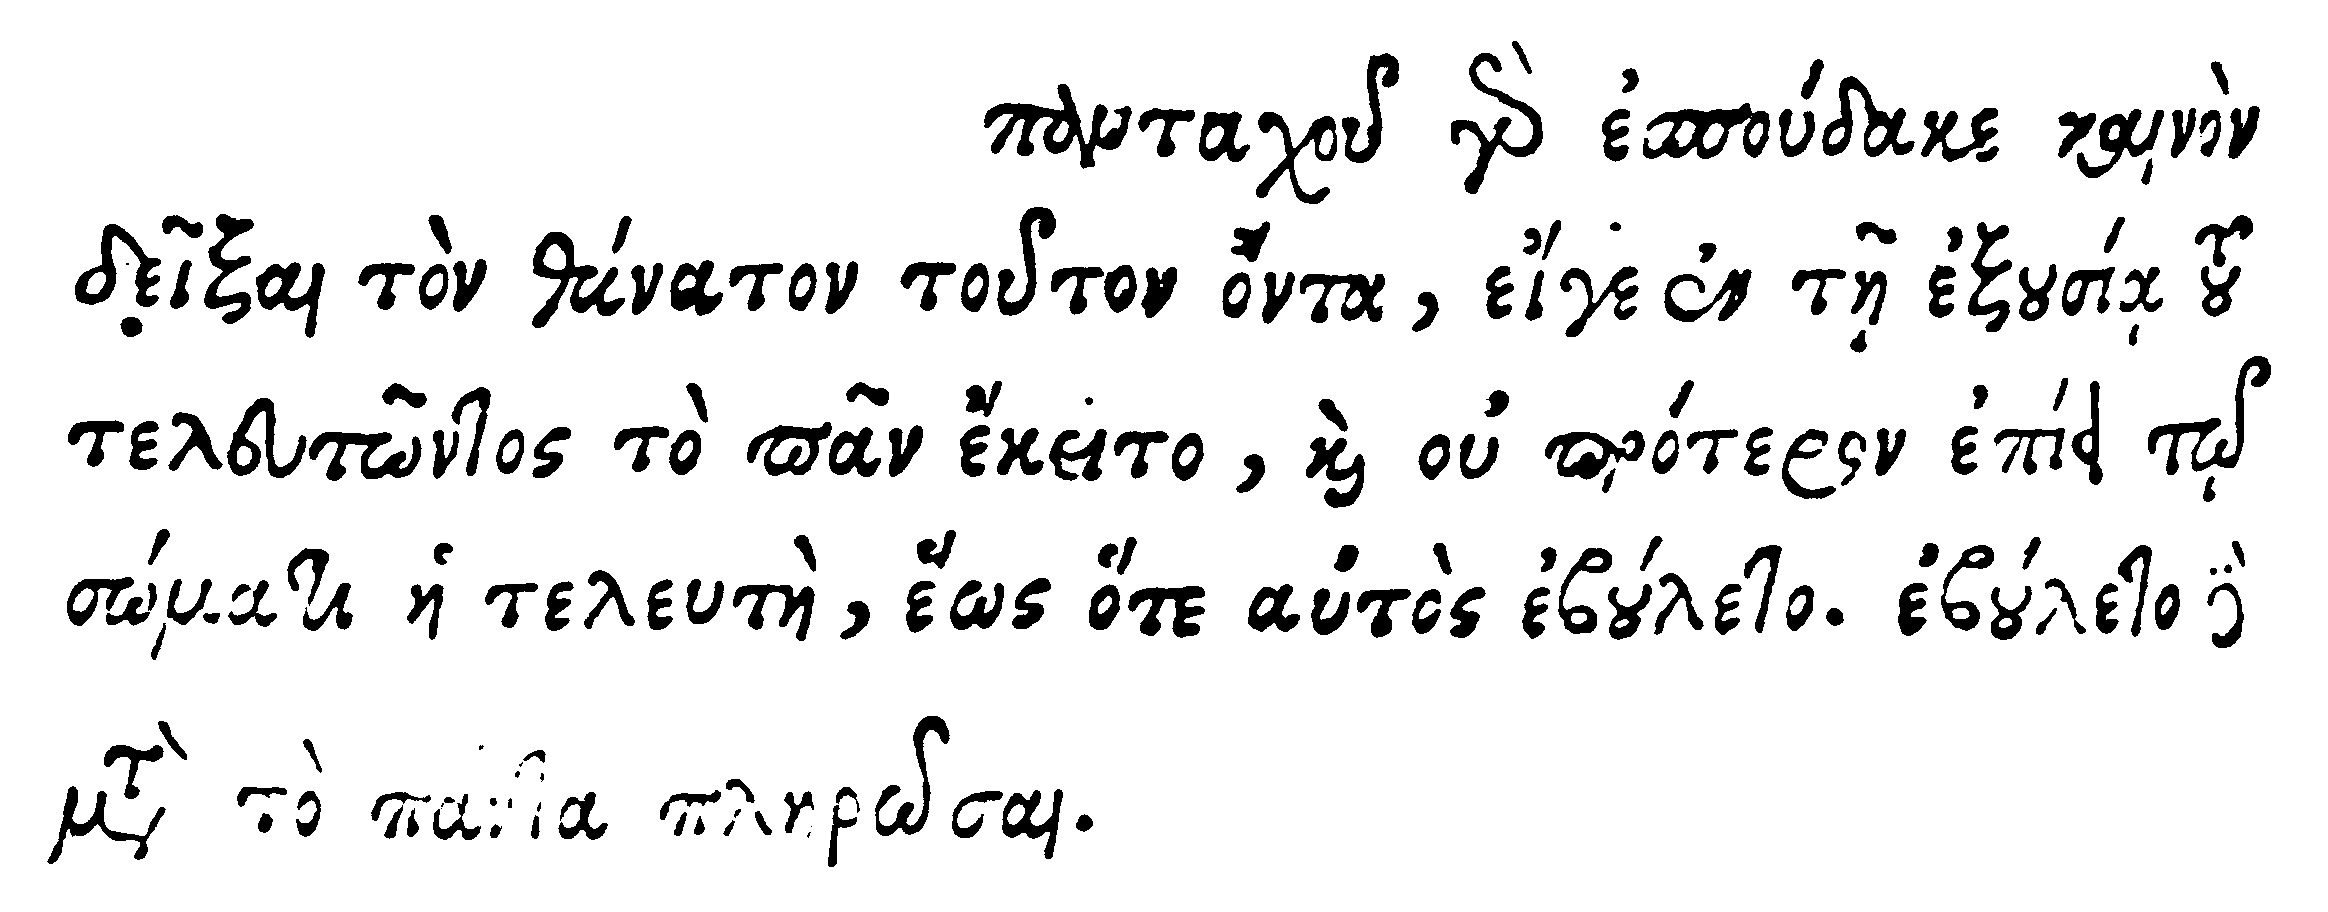 πανταχοῦ γὰρ ἐσπούδακε καινὸν
δεῖξαι τὸν θάνατον τοῦτον ὄντα, εἴγε ἐν τῇ ἐξουσίᾳ τοῦ
τελευτῶντος τὸ πᾶν ἔκειτο, καὶ οὐ πρότερον ἐπῄει τῷ
σώματι ἡ τελευτὴ, ἕως ὅτε αὐτὸς ἐβούλετο. ἐβούλετο δὲ
μετὰ τὸ πάντα πληρῶσαι.